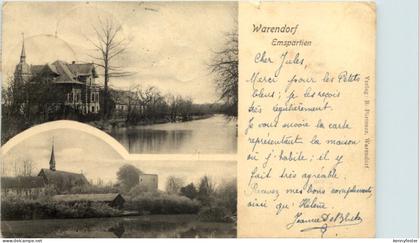 Warendorf
Emspartien
Cher Jules,
Merci pour les Petits
bleus; je les reçois
très régulièrement
Je vous envoie la carte
représentant la maison
où j'habite; il y
fait très agréable.
Recevez mes bons compliments
ainsi qu'Hélène.
Jeanne
Verlag B. Warendorf
bennyfoster